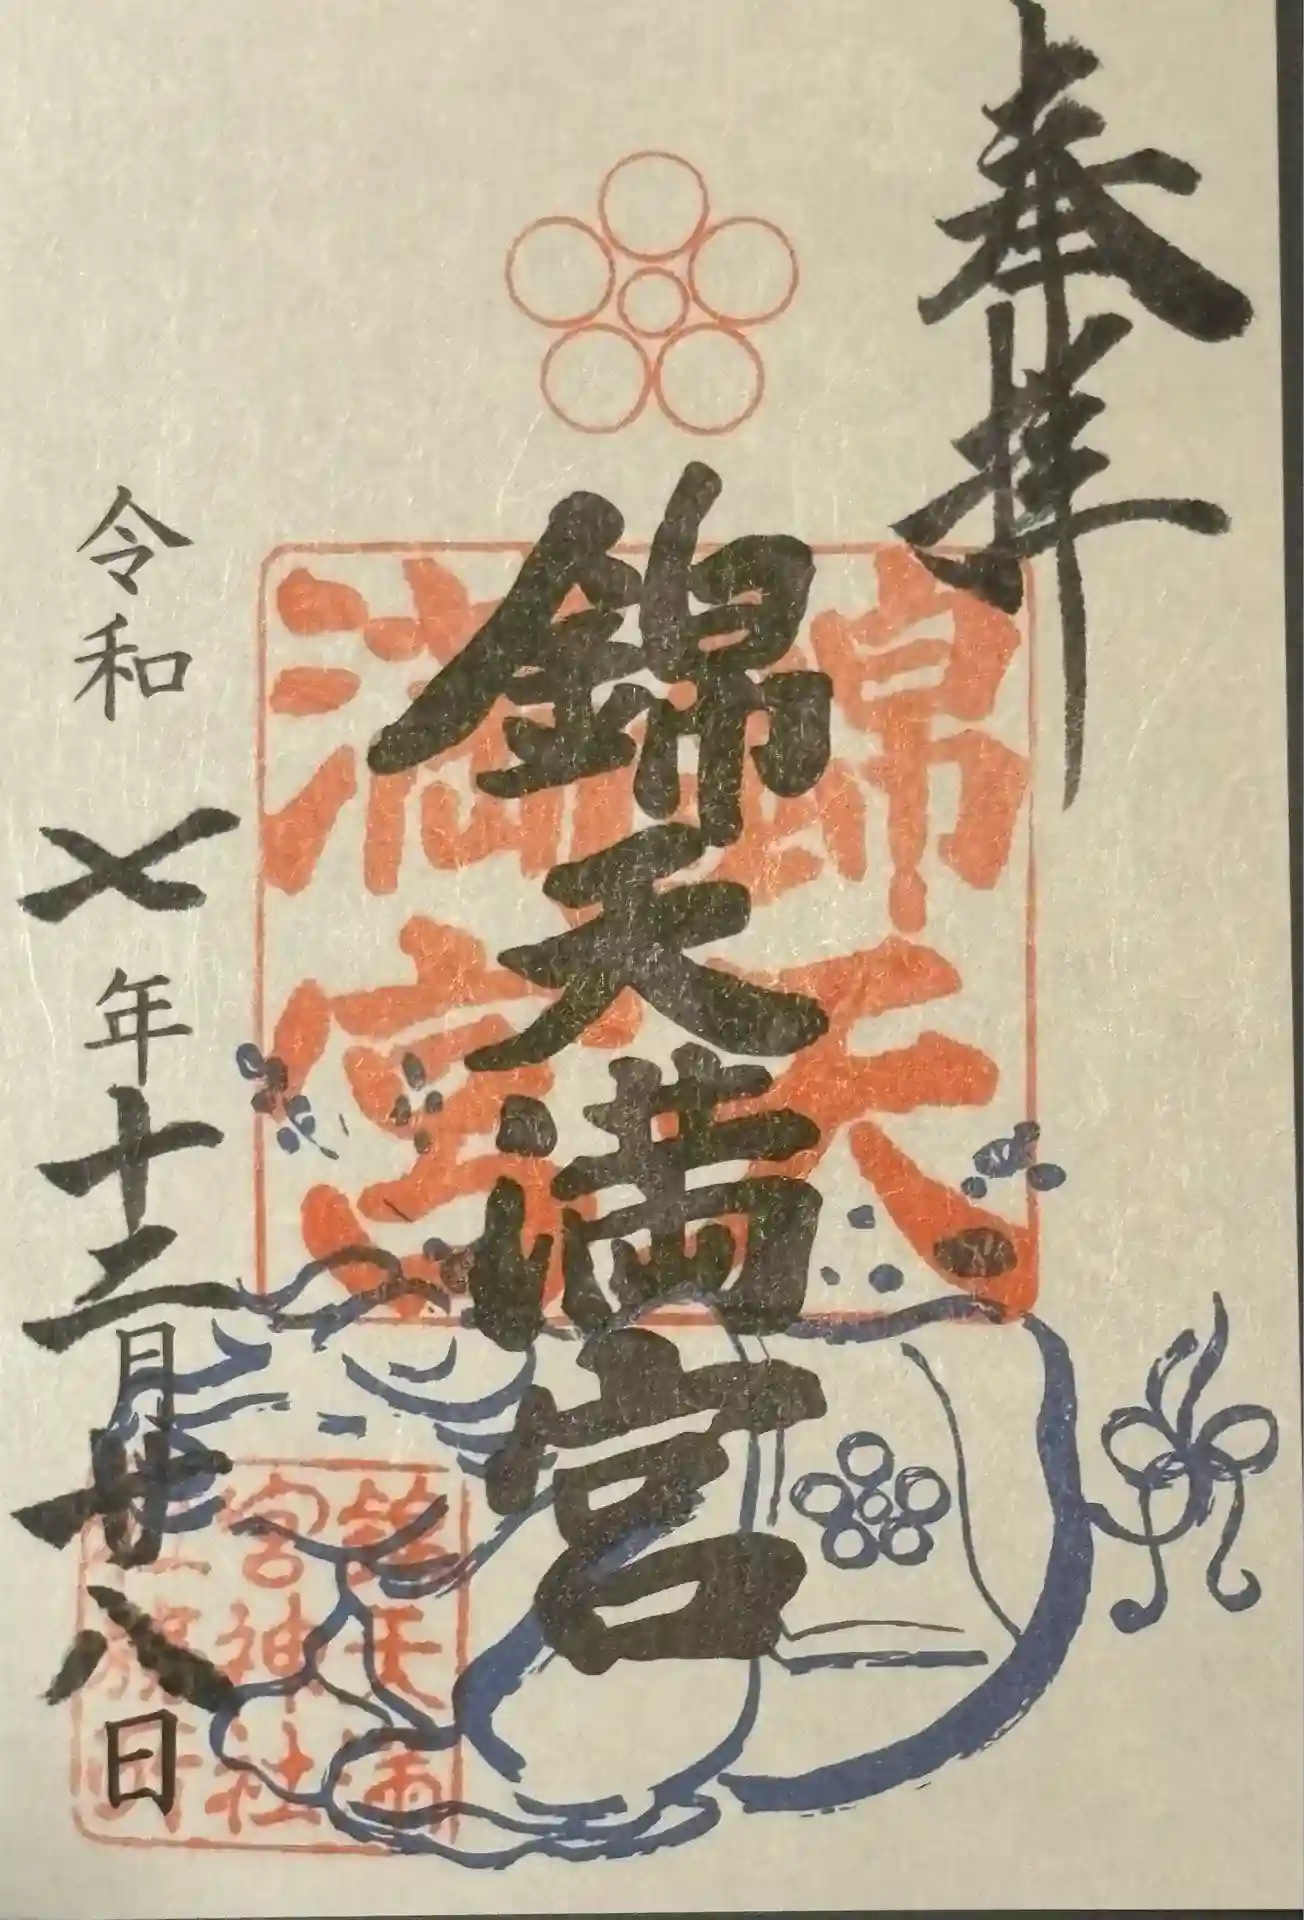 奉拝
錦天
満宮
錦天満宮
令和七年十二月廿八日
錦天満
宮神社